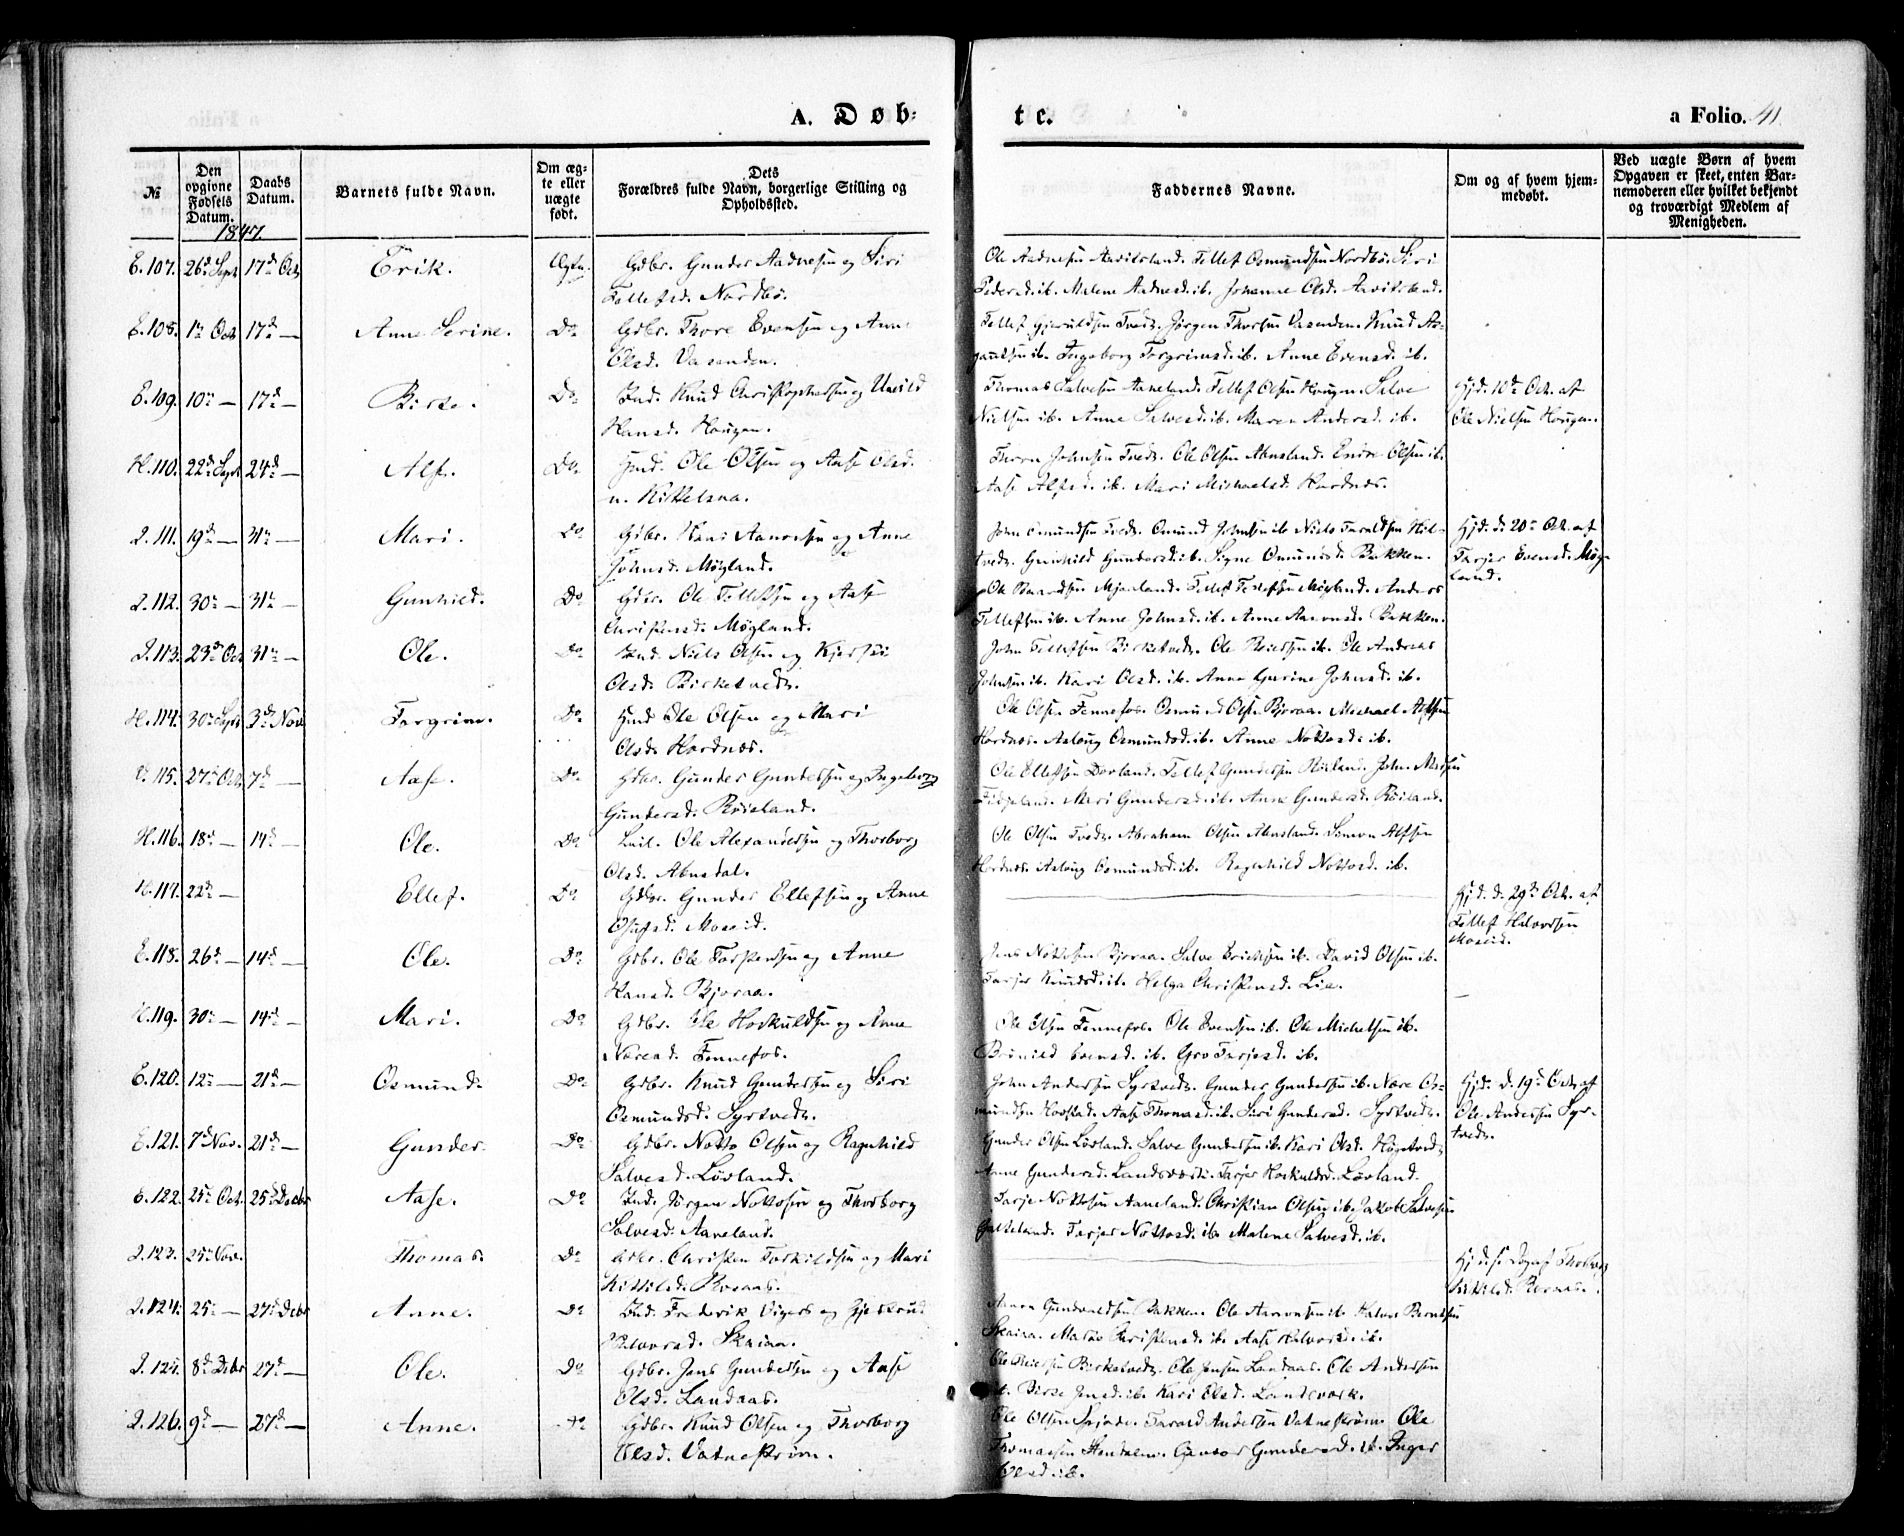 A. Døb-
te.
a Folio. 41.
№
Den opgivne Fødsels Datum.
Daabs Datum.
Barnets fulde Navn.
Om ægte eller uægte født.
Dets Forældres fulde Navn, borgerlige Stilling og Opholdssted.
Faddernes Navne.
Om og af hvem hjemmedøbt.
Ved uægte Børn af hvem Opgaven er skeet, enten Barnemoderen eller hvilket bekjendt og troværdigt Medlem af Menigheden.
1847.
E. 107. 26d Sept 17d Oct Erik. Ægte. Gdbr. Gunder Aadnesen og Siri
Tellefsd. Nordbø.
Ole Aadnesen Tellef Osmundsen Nordbø. Siri
Pedersd. ib. Malene Aadnesd. ib. Johanne Olsd.
E. 108. 1te Oct 17d — Anne Serine. Do Gdbr. Thore Evensen og Anne
Olsd. Vasenden.
Tellef Gjeruldsen Tvedt. Jørgen Thorsen Vasenden. Knud
ib. Ingeborg Torgrimsd. ib. Anne Evensd. ib.
E. 109. 10de — 17d — Birte. Do Ind. Knud Christophersen og Unild
Hansd. Hougen.
Thomas Salvesen Aaneland. Tellef Olsen Hougen. Salve
Nielsen ib. Anne Salvesd. ib. Maren Andersd. ib.
Hjd. 10de Oct. af
Ole Nielsen Hougen.
H. 110. 22d Sept 24d — Alf. Do Ole Olsen og Aase Olsd.
u. Kittelsaa.
Johnsen Tvedt. Ole Olsen Abusland. Olsen ib.
Aase Alfsd. ib. Mari Michaelsd. Hordnes.
I. 111. 19d — 31te — Mari. Do Gdbr. Hans Aanonsen og Anne
Johnsd. Møgland.
John Omundsen Tvedt. Omund Johnsen ib. Niels Taraldsen
tvedt. Gunhild Gundersd. ib. Signe Omundsd. Bakken.
Hjd. d. 20de Oct. af
Tarjer Evensd. Møg-
land.
I. 112. 30te — 31te — Gunhild. Do Gdbr. Ole Tellefsen og Aase
Christensd. Møgland.
Ole Baardsen Mjaaland. Tellef Tellefsen Møgland. Anders
Tellefsen ib. Anne Johnsd. ib. Anne Aanonsd. Bakken.
I. 113. 23de Oct 31te — Ole. Do Ind. Niels Olsen og Kjersti
Olsd. Birketvedt.
John Tellefsen Birketvedt. Ole Reiersen ib. Ole Andreas
Johnsen ib. Kari Olsd. ib. Anne Gurine Johnsd. ib.
H. 114. 30te Sept 3d Nov Torgrim. Do Ole Olsen og Mari
Olsd. Hordnes.
Ole Olsen Fennefos. Osmund Olsen Bjoraa. Michael Alfsen
Hordnes. Aslaug Osmundsd. ib. Anne Nottosd. ib.
115. 27de Oct. 7d — Aase. Do Gdbr. Gunder Gundersen og Ingeborg
Gundersd. Røiseland.
Ole Ellefsen Dovland. Tellef Gundersen Røiland. John
Mari Gundersd. ib. Anne Gundersd. Røiland.
H. 116. 18de — 14d — Ole. Do Ole Alexandersen og Thorborg
Olsd. Abusdal.
Ole Olsen Tvedt. Abraham Olsen Abusland. Simon Alfsen
Hordnes. Aslaug Osmundsd. ib. Ragnhild Nottosd. ib.
H. 117. 22de — Ellef. Do Gdbr. Gunder Ellefsen og Anne
Moseid.
Hjd. d. 29de Oct. af
Tellef Halvorsen
Moseid.
E. 118. 26d — 14d — Ole. Do Gdbr. Ole Torstensen og Anne
Hansd. Bjoraa.
Jens Nottosen Bjoraa. Salve Erichsen ib. David Olsen ib.
Tarjer Knudsd. ib. Helga Christensd. Lia.
H. 119. 30te — 14d — Mari. Do Gdbr. Ole Hoskuldsen og Anne
Fennefos.
Ole Olsen Fennefos. Ole Evensen ib. Ole Michelsen ib.
Evensd. ib. Gro Tarjesd. ib.
E. 120. 12te — 21d — Osmund. Do Gdbr. Knud Gundersen og Siri
Osmundsd. Syrtvedt.
John Andersen Syrtvedt. Gunder Gundersen ib. Nære Os-
mundsen Hovstad. Aase Thomasd. ib. Siri Gundersd. Syrtvedt.
Hjd. d. 19d Oct. af
Ole Andersen Syr-
tvedt.
E. 121. 7d Nov. 21d — Gunder. Do Gdbr. Notto Olsen og Ragnhild
Salvesd. Løvland.
Gunder Olsen Løvland. Salve Gundersen ib. Kari Olsd. Høgetvedt
Anne Gundersd. Landsværk. Tarjer Hoskuldsd. Løvland.
E. 122. 25de Oct. 25d Decbr Aase. Do Ind. Jørgen Nottosen og Thorborg
Salvesd. Aaneland.
Tarje Nottosen Aaneland. Christian Olsen ib. Jakob Salvesen
Tarjer Nottosd. ib. Malene Salvesd. ib.
I. 123. 25de Nov. Thomas. Do Gdbr. Christen Torkildsen og Mari
Kittilsd. Roraas.
Thorborg
Kittilsd. Roraas.
I. 124. 25de — 27d Debr Anne. Do Ind. Frederik og
Halvorsd. Skaiaa.
Aanon Gundvaldsen Bakken. Ole Aanonsen ib. Halvor Berntsen
Skaiaa. Christensd. ib. Aase Halvorsd. ib.
I. 125. 8d Debr 27d — Ole. Do Gdbr. Jens Gundersen og Aase
Olsd. Landaas.
Ole Reiersen Birketvedt. Ole Jensen Landaas. Ole Andersen
Birte Jensd. ib. Kari Olsd. Landsværk.
I. 126. 9d — 27d — Anne. Do Gdbr. Knud Olsen og Thorborg
Olsd. Vatnestrøm.
Ole Olsen Tarald Andersen Vatnestrøm. Ole
Thomassen Gundersd. ib. Inger
Olsd. ib.